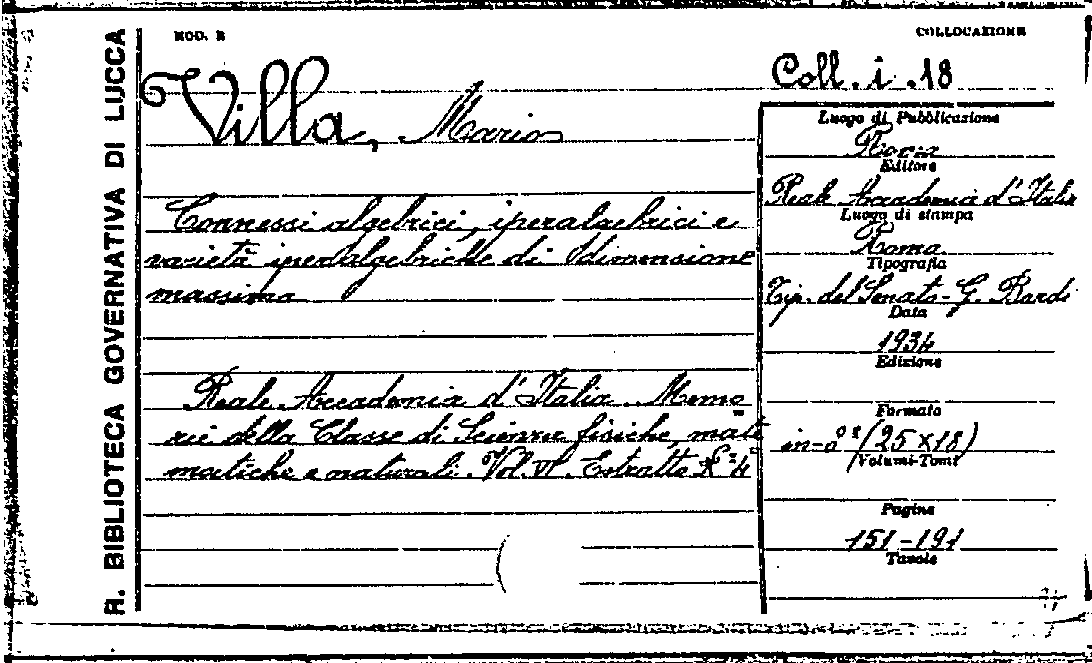 R. BIBLIOTECA GOVERNATIVA DI LUCCA
MOD. R
COLLOCAZIONE
Coll. i. 18
Villa, Mario
Connessi algebrici, iperalgebrici e
varietà iperalgebriche di dimensione
massima
Reale Accademia d'Italia. Memo
rie della Classe di Scienze fisiche, mate
matiche e naturali. Vol. VI. Estratto N° 4
Luogo di Pubblicazione
Roma
Editore
Reale Accademia d'Italia
Luogo di stampa
Roma
Tipografia
Tip. del Senato - G. Bardi
Data
1934
Edizione
Formato
in-8° (25×18)
Volumi-Tomi
Pagine
151-191
Tavole